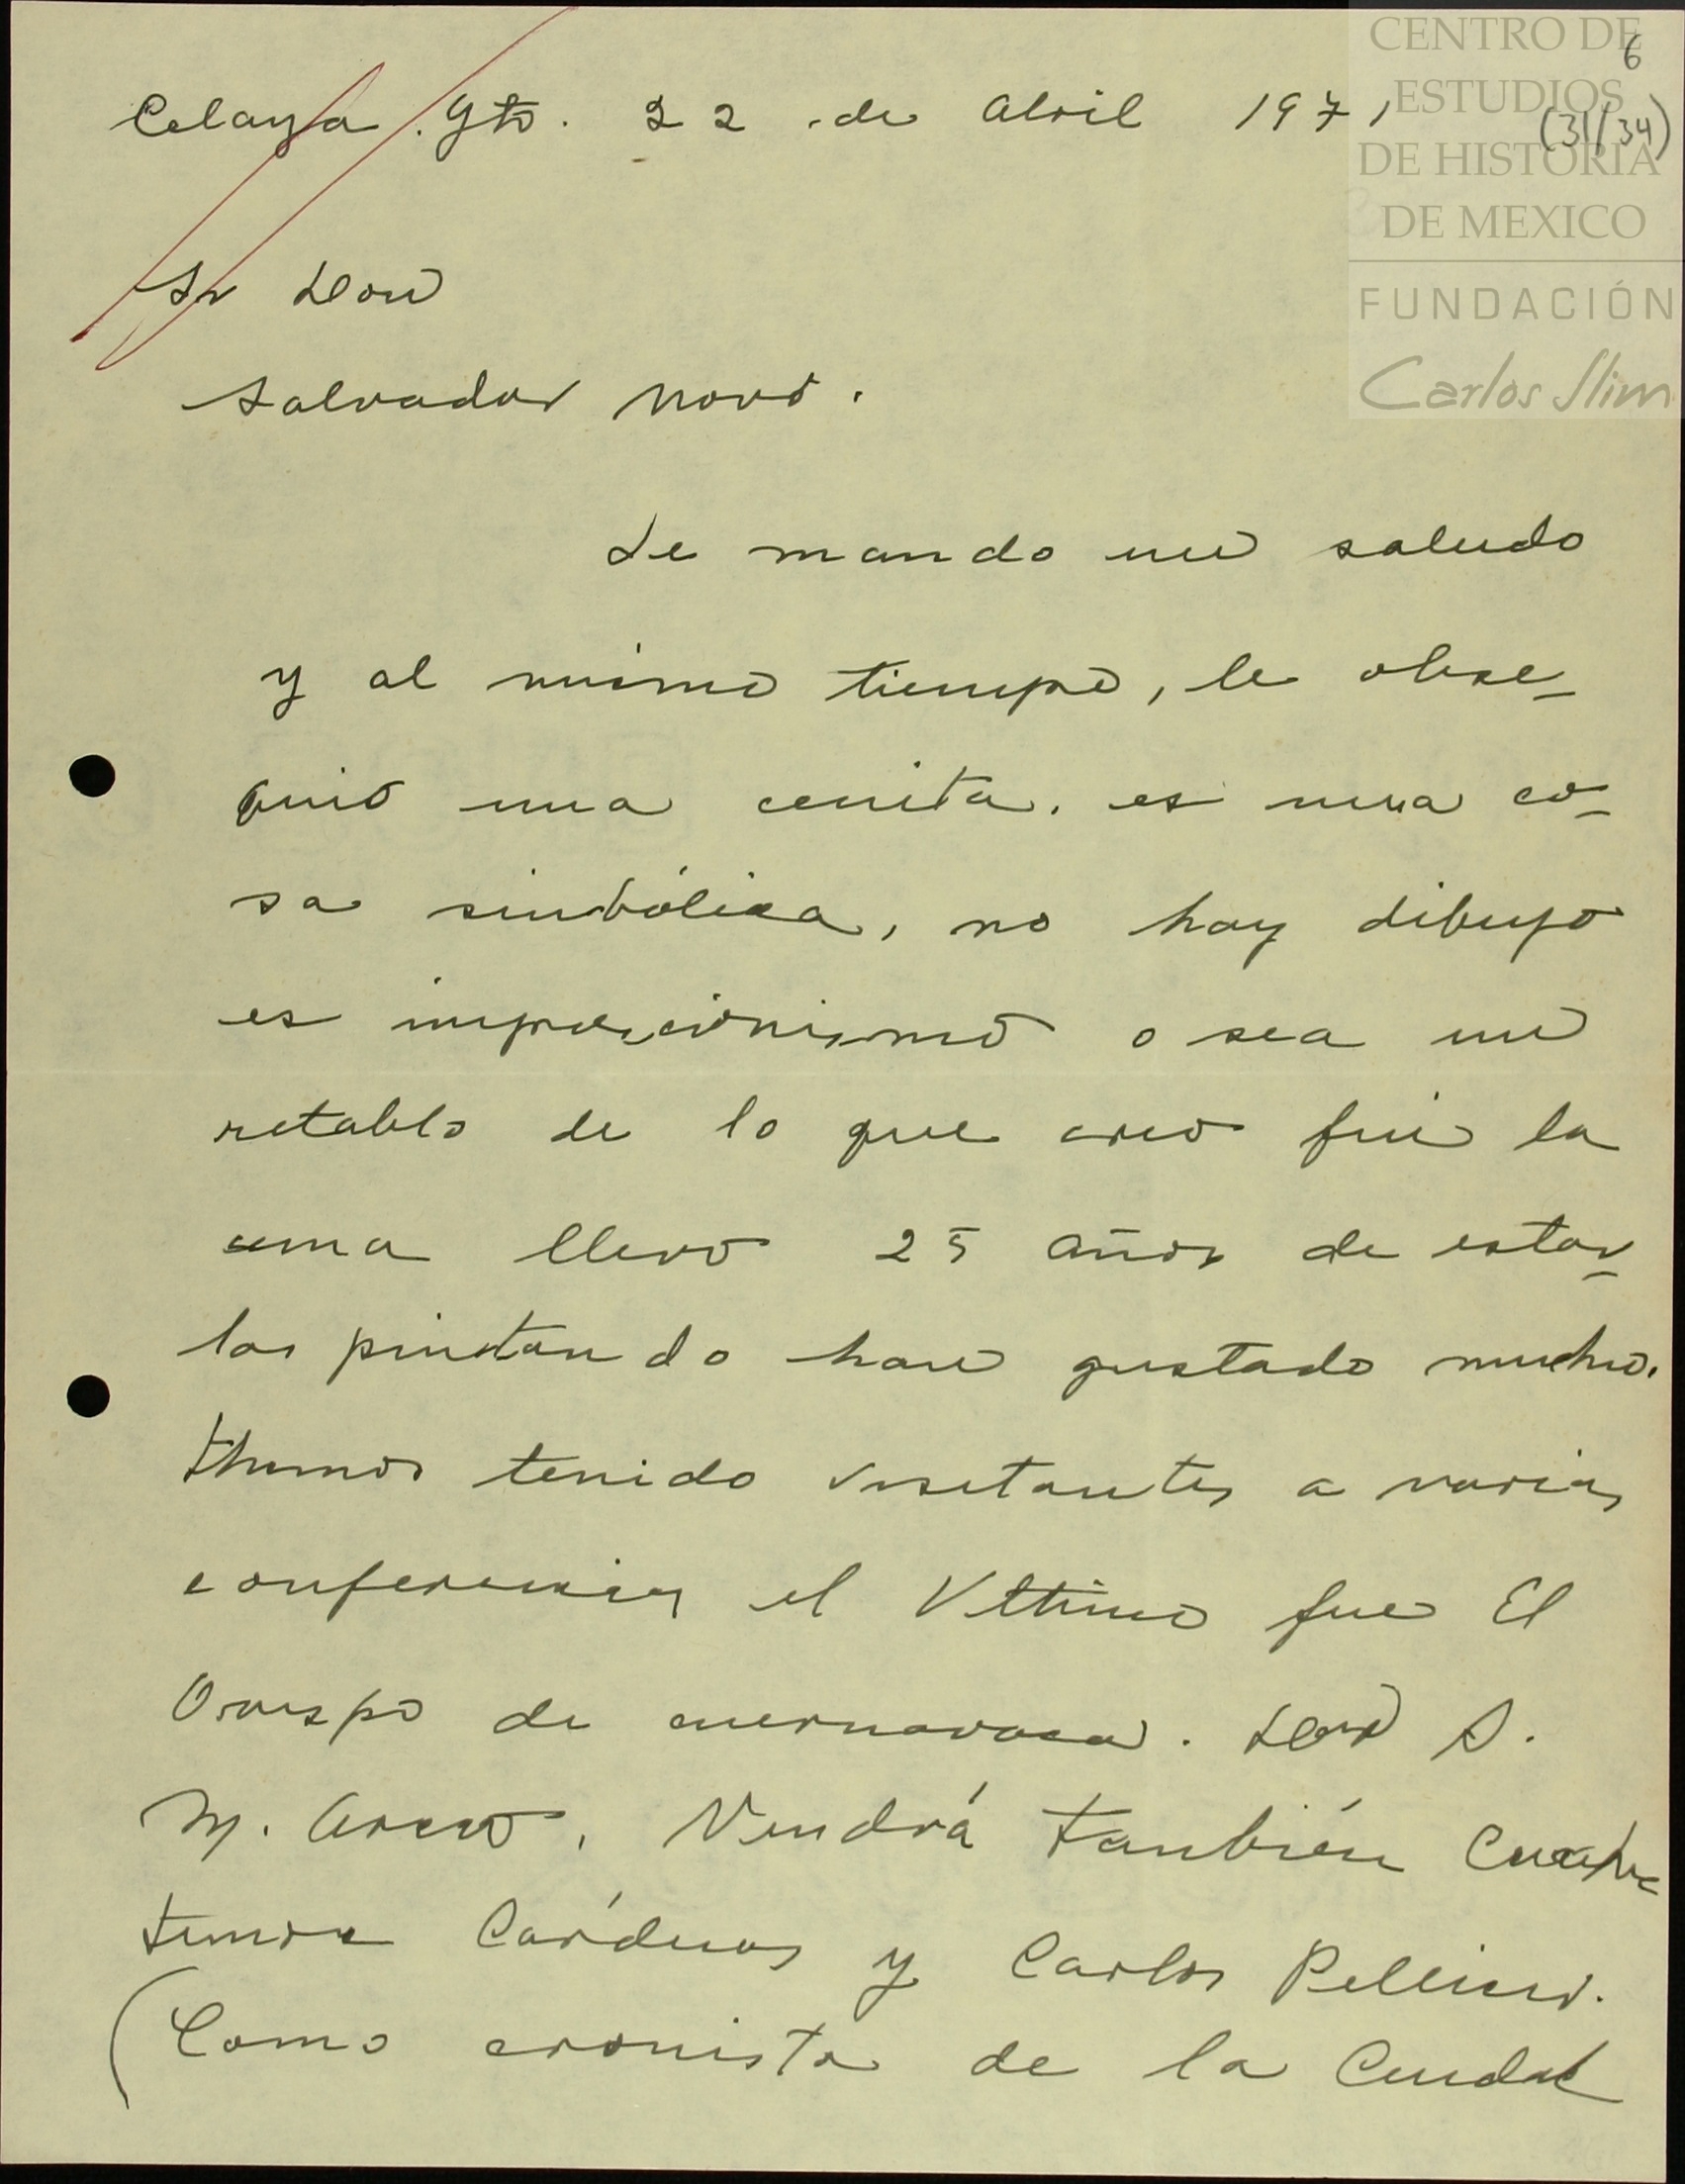 CENTRO DE
ESTUDIOS
DE HISTORIA
DE MEXICO
FUNDACIÓN
Carlos Slim
6
(31/34)
Celaya. Gto. 22 de abril 1971
Sr Don
Salvador Novo.
Le mando un saludo
y al mismo tiempo, le obse-
quio una cenita. es una co-
sa sinbólica, no hay dibujo
es impresionismo o sea un
retablo de lo que creo fué la
cena llevo 25 años de estar-
las pintando han gustado mucho.
Hemos tenido visitantes a varias
conferencias el Vltimo fue El
Ovispo de cuernavaca. Don S.
M. Arceo. Vendrá tanbién Cuauhte
temoc Cárdenas y Carlos Pellicer.
(Como cronista de la Ciudad